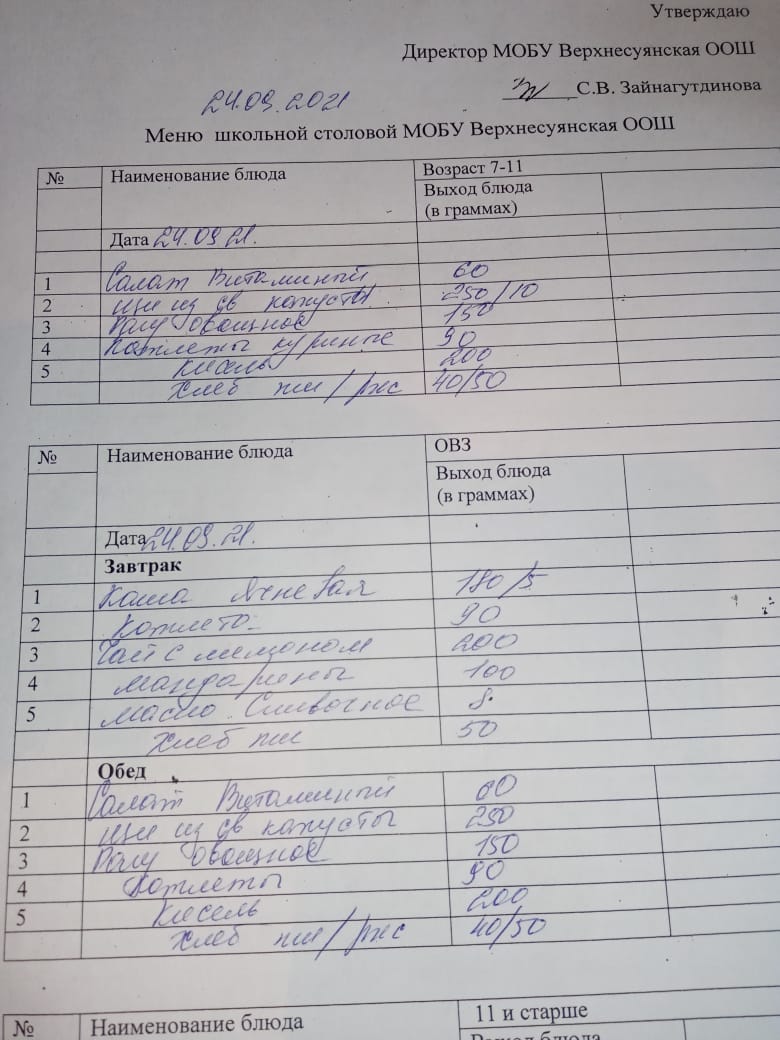 Утверждаю
Директор МОБУ Верхнесуянская ООШ
24.09.2021 С.В. Зайнагутдинова
Меню школьной столовой МОБУ Верхнесуянская ООШ
№ Наименование блюда Возраст 7-11
Выход блюда
(в граммах)
Дата 24.09.21.
1 Салат Витаминый 60
2 щи из св капусты 250/10
3 Рагу овощное 150
4 Котлеты куриные 90
5 Кисель 200
Хлеб пш/рис 40/50
№ Наименование блюда ОВЗ
Выход блюда
(в граммах)
Дата 24.09.21.
Завтрак
1 Каша Ячневая 180/5
2 Котлета 90
3 Чай с лимоном 200
4 мандарины 100
5 масло Сливочное 8
Хлеб пш 50
Обед
1 Салат Витаминый 60
2 щи из св капусты 250
3 Рагу овощное 150
4 Котлеты 90
5 Кисель 200
Хлеб пш/рис 40/50
№ Наименование блюда 11 и старше
блюда